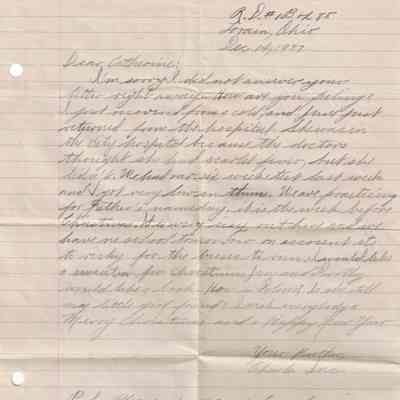 R.D.#1 Box 85
Lorain, Ohio
Dec. 14, 1937
Dear Catherine:
I'm sorry I did not answer your
letter right away. How are you feeling?
I just recovered from a cold, and just
returned from the hospital. She was in
the city hospital because the doctors
thought she had scarlet fever, but she
didn't. We had our six weeks test last week
and I got very low in them. We are practicing
for Father's nameday. It is the week before
Christmas. It is very icy out here and we
have no school tomorrow on account its
to risky for the buses to run. I would like
a sweater for Christmas, and Dorothy
would like a book. How is
my little girl friend? I wish everybody a
Merry Christmas and a Happy New Year
Your Brother,
Charles